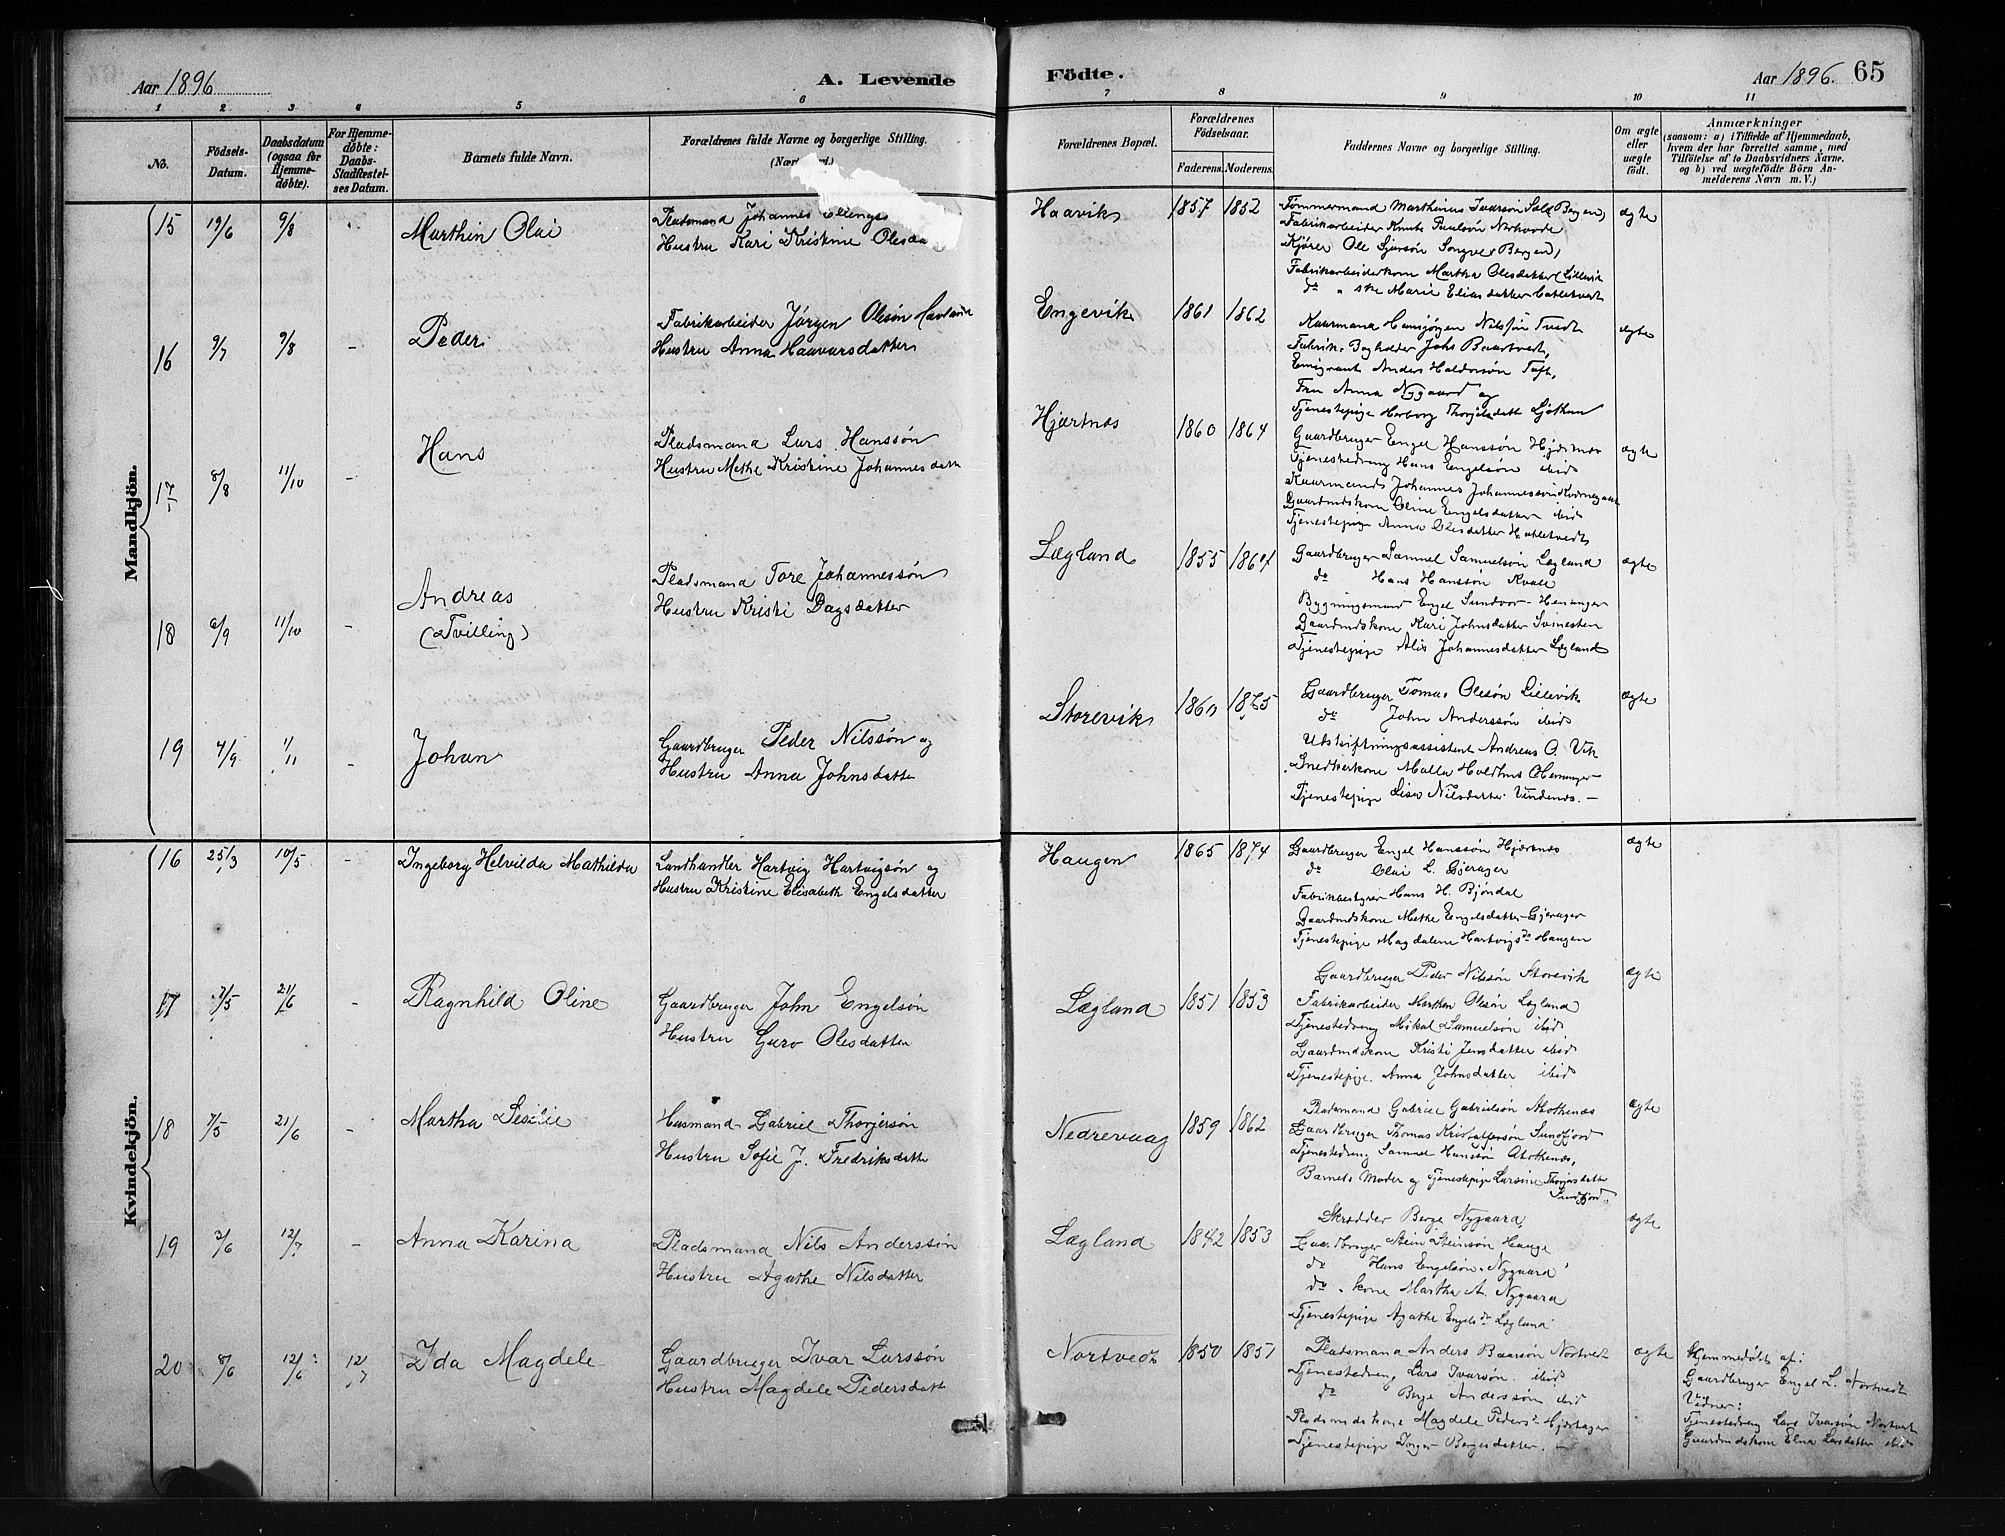 Aar 1896
A. Levende
Födte.
Aar 1896. 65
1 2 3 4 5 6 7 8 9 10 11
No.
Födsels-
Datum.
Daabsdatum
(ogsaa for
Hjemme-
döbte).
For Hjemme-
döbte:
Daabs-
Stadfæstel-
ses Datum.
Barnets fulde Navn.
Forældrenes fulde Navne og borgerlige Stilling.
Forældrenes Bopæl.
Forældrenes
Födselsaar.
Faderens. Moderens.
Faddernes Navne og borgerlige Stilling.
Om ægte
eller
uægte
födt.
Anmærkninger
(saasom: a) i Tilfælde af Hjemmedaab,
hvem der har forrettet samme, med
Tilföielse af to Daabsvidners Navne,
og b) ved uægtefödte Börn An-
melderens Navn m. V.)
Mandkjön.
15 19/6 9/8
Marthin Olai
Pladsmand Johannes
Hustru Kari Kristine
Haavik 1857 1852
Tømmermand Marthinus Ivarsøn
Fabrikarbeider Knut Paulsøn
Kjører Ole Sjursøn
Fabrikarbeiderkone Martha Olesdatter Lillevik
ægte
16 9/7 9/8 -
Peder
Fabrikarbeider Jørgen Olesøn
Hustru Anna Haavarsdatter
Engevik 1861 1862
Nilssøn Tvedt
Emigrant Anders Haldorsøn Toft,
Fru Anna Nygaard og
Tjenestepige
ægte
17 8/8 11/10 -
Hans
Pladsmand Lars Hanssøn
Hustru Methe Kristine Johannesdatt
Hjærtnæs 1860 1864
Gaardbruger Engel Hanssøn Hjærtnæs
Tjenestedreng Hans Engelsøn ibid
Johannes Johannessøn
Gaardmdskone Oline Engelsdatter ibid
Tjenestepige Anna Olesdatter
ægte
18 6/9 11/10 -
Andreas
(Tvilling)
Pladsmand Tore Johannessøn
Hustru Kristi Dagsdatter
Lægland 1855 1864
Gaardbruger Samuel Samuelsøn Lægland
do Hans Hanssøn Kvale
Bygningsmand Engel Sundvor
Gaardmdskone Kari Johnsdatter Svinesten
Tjenestepige Alis Johannesdatter Lægland
ægte
19 4/9 1/11 -
Johan
Gaardbruger Peder Nilssøn og
Hustru Anna Johnsdatte
Storevik 1860 1865
Gaardbruger Tomas Olesøn Lillevik
do John Anderssøn ibid
Udskiftningsassistent Andreas O. Vik
Snedkerkone Malla
Tjenestepige Lisa Nilsdatter Vindenæs. -
ægte
Kvindekjön.
16 25/3 10/5 -
Ingeborg Helvilda Mathilda
Landhandler Hartvig Hartvigsøn og
Hustru Kristine Elisabeth Engelsdatter
Haugen 1865 1874
Gaardbruger Engel Hanssøn Hjærtnæs
do Olai L. Gjerager
Fabrikbestyrer Hans H. Bjøndal
Gaardmdskone Methe Engelsdatter Gjerager
Tjenestepige Magdalene Hartvigsda Haugen
ægte
17 7/5 21/6 -
Ragnhild Oline
Gaardbruger John Engelsøn
Hustru Guro Olesdatter
Lægland 1851 1853
Gaardbruger Peder Nilsøn Storevik
Fabrikarbeider Marthen Olesøn Lægland
Tjenestedreng Mikal Samuelsøn ibid
Gaardmdskone Kristi Jensdatter ibid
Tjenestepige Anna Johnsdatter ibid
ægte
18 7/5 21/6 -
Martha Sesilie
Husmand Gabriel Thorgersøn
Hustru Sofie J. Fredriksdatte
Nedrevaag 1859 1862
Pladsmand Gabriel Gabrielsøn
Gaardbruger Thomas Kristoffersøn Sundfjord
Tjenestedreng Samuel Hanssøn
Barnets Moder og Tjenestepige Larsine
Sundfjord.
ægte
19 2/6 12/7 -
Anna Karina
Pladsmand Nils Anderssøn
Hustru Agathe Nilsdatter
Lægland 1842 1853
Skrædder Berge Nygaard,
Gaardbruger Stein Steinsøn Hauge
do Hans Engelsøn Nygaard
do kone Martha A. Nygaard
Tjenestepige Agathe Engelsda Lægland
ægte
20 8/6 12/6 12/7
Ida Magdele
Gaardbruger Ivar Larssøn
Hustru Magdele Pedersdatt
Nortvedt 1850 1851
Pladsmand Anders Baarsøn Nortvedt
Tjenestedreng Lars Ivarsøn ibid
do Berge Anderssøn ibid
Pladsmdskone Magdele Peders
Tjenestepige Inger Bergesdatter. -
ægte
Hjemmedøbt af:
Gaardbruger Engel L. Nortvedt
Vidner:
Tjenestedreng Lars Ivarsøn Nortvet
Gaardmdskone Elna Larsdatter ibid